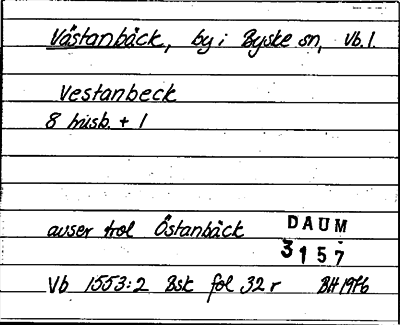 Västanbäck, by i Byske sn, Vb. l.
Vestanbeck
8 husb. + 1
avser trol Östanbäck
DAUM
3157
Vb 1553:2 Bsk fol 32 r BH 1976